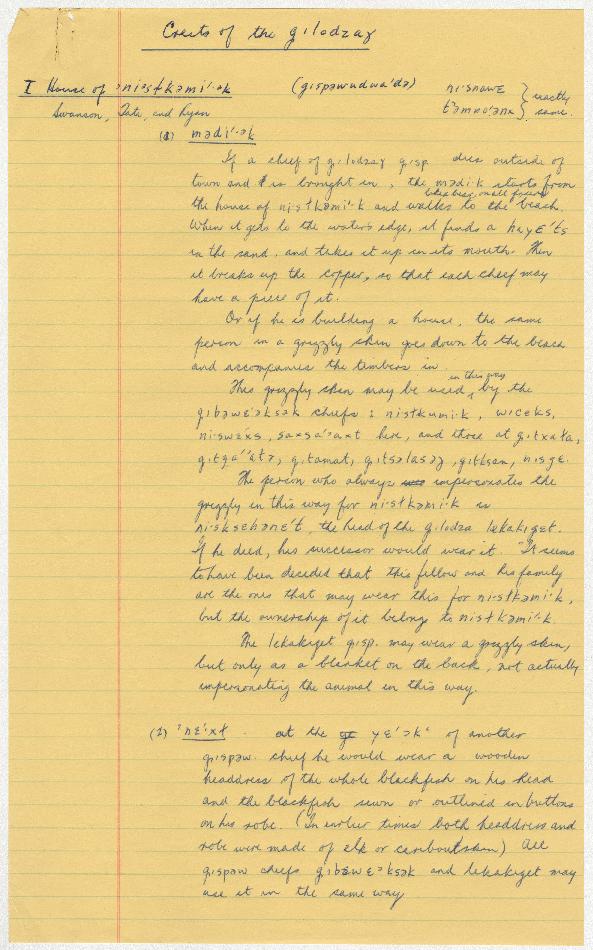 Crests of the gilodzaʒ
I House of ʼniəstkəmi·ʼək (gispəwudwaʼdə) niʼsnawɛ } exactly
Swanson, Tate, and Ryan tʼəmnoʼənx } same.
(1) mədiʼ·ək
If a chief of gilodzaʒ gisp dies outside of
town and is brought in, the mədi·k starts from
the house of nistkəmiʼ·k and walks to the beach.
When it gets to the waters edge, it finds a hayɛʼts
in the sand, and takes it up in its mouth. Then
it breaks up the copper, so that each chief may
have a piece of it.
Or if he is building a house, the same
person in a grizzly skin goes down to the beach
and accompanies the timbers in.
This grizzly skin may be used in this way by the
gibəwɛʼəksək chiefs: nistkumi·k, wicɛks,
ni·swɛxs, saxsaʼəaxt here, and those at gitxała,
gitgaʼʼatə, gitamat, gitsəlasəʒ, gitksan, nisgɛ.
The person who always impersonates the
grizzly in this way for ni·stkəmi·k is
ni·sksɛhənɛʼt, the head of the gilodza lɛkakigɛt.
If he died, his successor would wear it. It seems
to have been decided that this fellow and his family
are the ones that may wear this for ni·stkəmi·k,
but the ownership of it belong to nistkəmiʼ·k.
The lɛkakigɛt gisp. may wear a grizzly skin,
but only as a blanket on the back, not actually
impersonating the animal in this way.
(2) ʼnɛʼ·xł at the yɛʼ·əkʼ of another
gispəw. chief he would wear a wooden
headdress of the whole blackfish on his head
and the blackfish sewn or outlined in buttons
on his robe. (In earlier times both headdress and
robe were made of elk or caribou skin) All
gispəw chiefs gibəwɛʼəksək and lɛkakigɛt may
use it in the same way